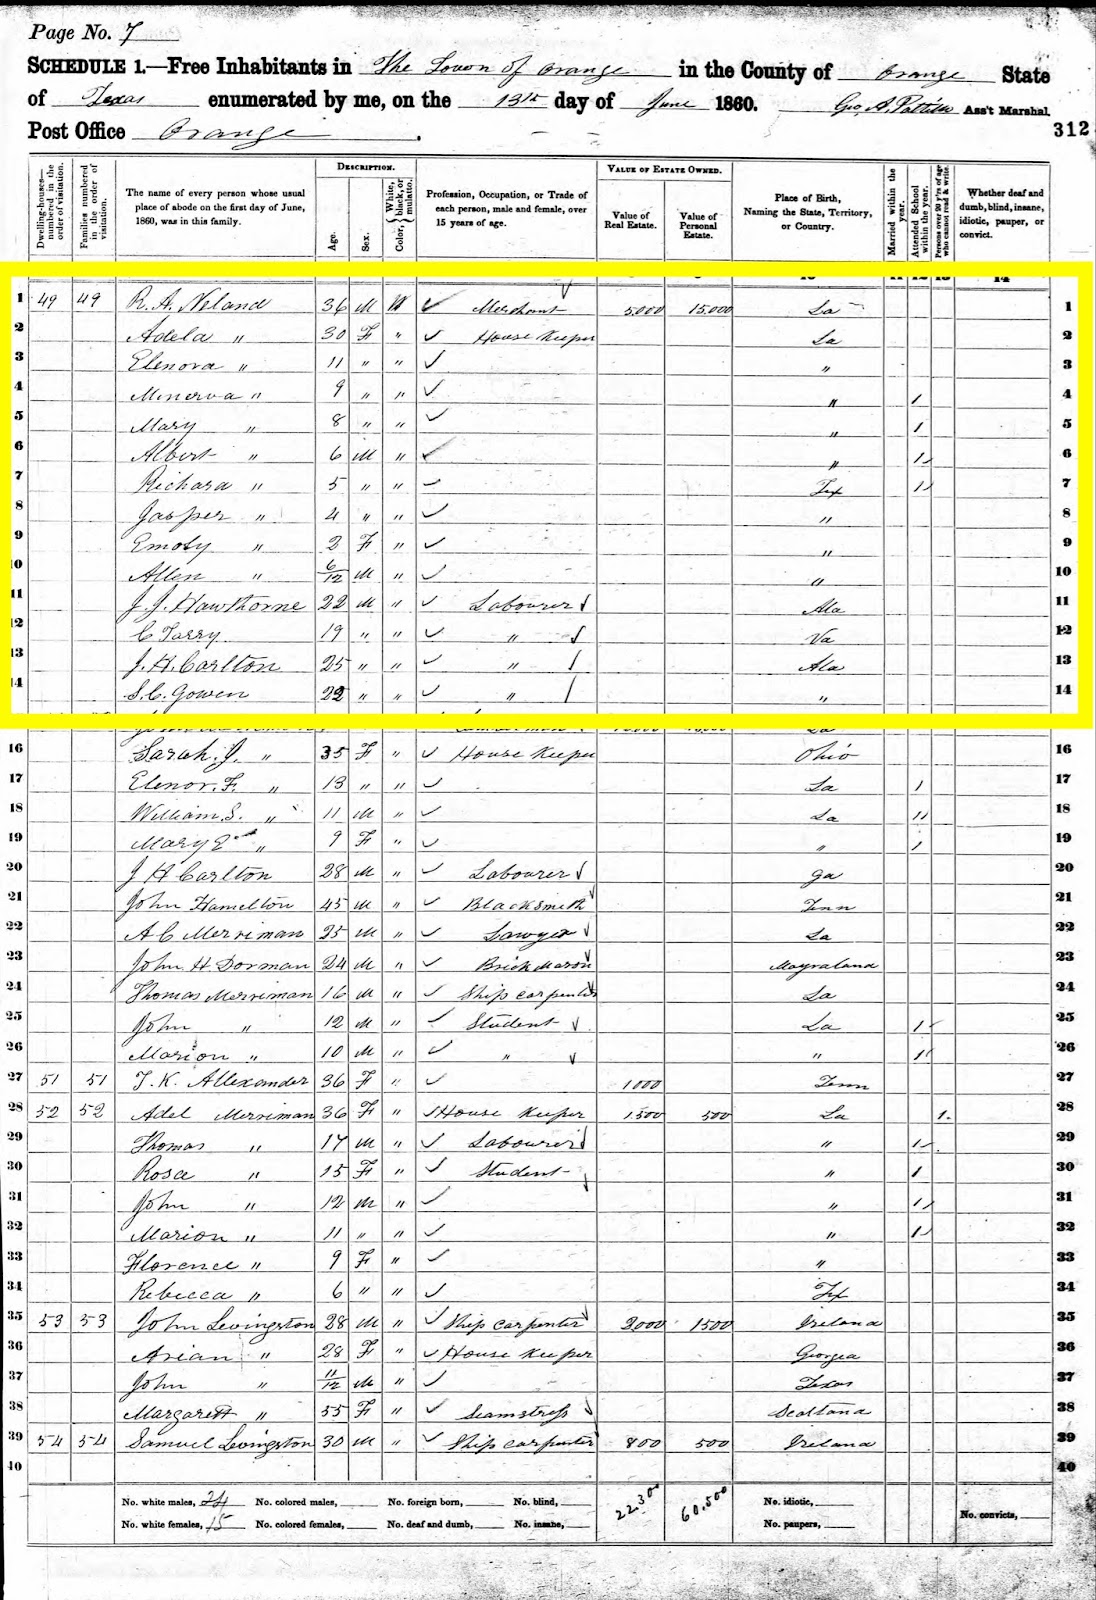 Page No. 7
SCHEDULE 1.—Free Inhabitants in The Town of Orange in the County of Orange State
of Texas enumerated by me, on the 13th day of June 1860. Geo. A. Pattillo Ass't Marshal.
Post Office Orange.
312
Dwelling-houses—numbered in the order of visitation.
Families numbered in the order of visitation.
The name of every person whose usual place of abode on the first day of June, 1860, was in this family.
DESCRIPTION.
Age.
Sex.
Color, White, black, or mulatto.
Profession, Occupation, or Trade of each person, male and female, over 15 years of age.
VALUE OF ESTATE OWNED.
Value of Real Estate.
Value of Personal Estate.
Place of Birth, Naming the State, Territory, or Country.
Married within the year.
Attended School within the year.
Persons over 20 y'rs of age who cannot read & write
Whether deaf and dumb, blind, insane, idiotic, pauper, or convict.
1 49 49 R. A. Neland 36 M W Merchant 5,000 15,000 La 1
2 Adela " 30 F " House Keeper La 2
3 Elenora " 11 " " " 3
4 Minerva " 9 " " " 1 4
5 Mary " 8 " " " 1 5
6 Albert " 6 M " " 1 6
7 Richard " 5 " " Tex 1 7
8 Jasper " 4 " " " 8
9 Emoly " 2 F " " 9
10 Allen " 6/12 M " " 10
11 J. J. Hawthorne 22 M " Labourer Ala 11
12 C Tarry 19 " " " Va 12
13 J. H. Carlton 25 " " " Ala 13
14 S. C. Gowen 22 " " " " 14
16 Sarah J. " 35 F " House Keeper Ohio 16
17 Elenor. F. " 13 " " La 1 17
18 William. S. " 11 M " La 1 18
19 Mary E " 9 F " " 1 19
20 J H Carlton 28 M " Labourer ga 20
21 John Hamelton 45 M " Blacksmith Tenn 21
22 A C Merriman 25 M " Lawyer La 22
23 John H Dorman 24 M " Brick Mason Mayraland 23
24 Thomas Merriman 16 M " Ship carpenter La 24
25 John " 12 M " Student La 1 25
26 Marion " 10 M " " " 1 26
27 51 51 T. K. Allexander 36 F " 1000 Tenn 27
28 52 52 Adel Merriman 36 F " House Keeper 1.500 500 La 1. 28
29 Thomas " 17 M " Labourer " 1 29
30 Rosa " 15 F " Student " 1 30
31 John " 12 M " " 1 31
32 Marion " 11 " " " 1 32
33 Florence " 9 F " " 33
34 Rebecca " 6 " " Tex 34
35 53 53 John Levingston 28 M " Ship carpenter 2000 1500 Ireland 35
36 Arian " 28 F " House Keeper Georgea 36
37 John " 11/12 M " Texas 37
38 Margarett " 55 F " Seamstress Scotland 38
39 54 54 Samuel Levingston 30 M " Ship carpenter 800 500 Ireland 39
40 40
No. white males, 24 No. colored males, No. foreign born, No. blind, 22,300 60,500 No. idiotic,
No. white females, 15 No. colored females, No. deaf and dumb, No. insane, No. paupers, No. convicts,